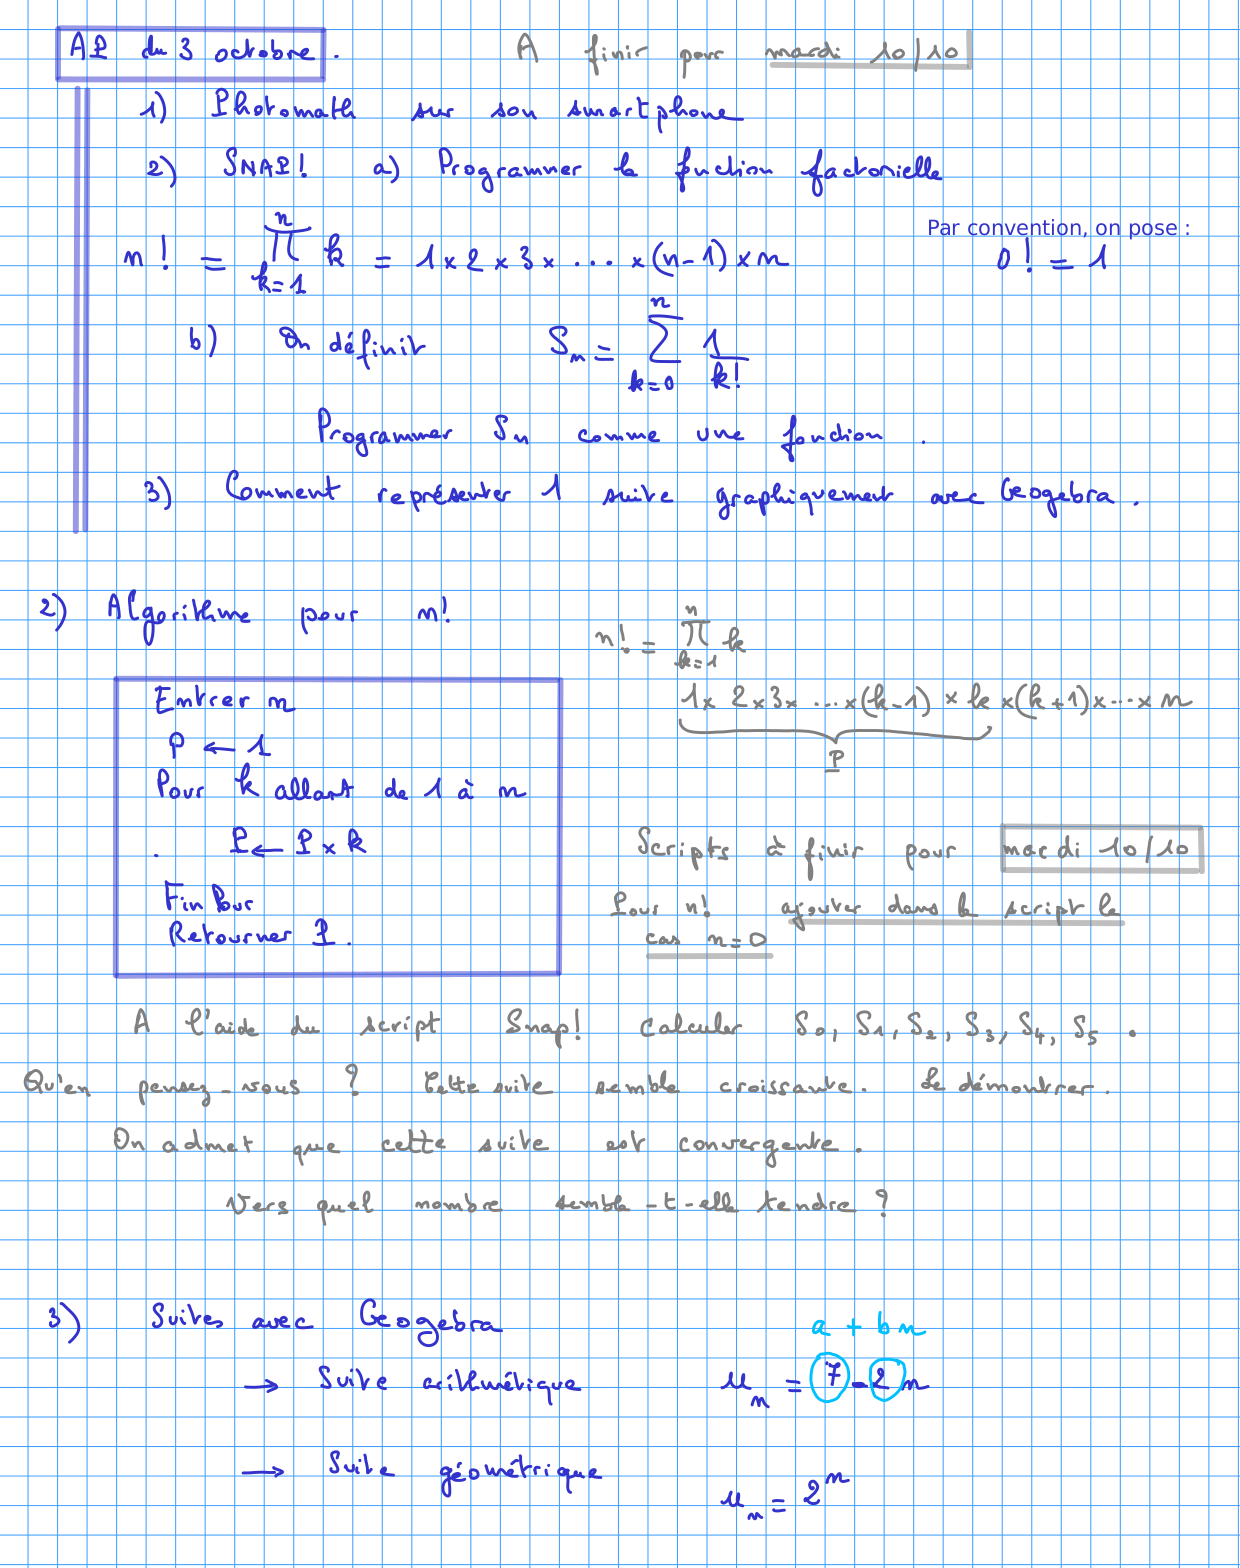 AP du 3 octobre. A finir pour mardi 10/10
1) Photomath sur son smartphone
2) SNAP! a) Programmer la fonction factorielle
Par convention, on pose :
n! = ∏_{k=1}^{n} k = 1 × 2 × 3 × ... × (n-1) × n 0! = 1
b) On définit S_n = ∑_{k=0}^{n} 1/k!
Programmer S_n comme une fonction.
3) Comment représenter 1 suite graphiquement avec Geogebra.
2) Algorithme pour n!
n! = ∏_{k=1}^{n} k
Entrer n
1 × 2 × 3 × ... × (k-1) × k × (k+1) × ... × n
P
P ← 1
Pour k allant de 1 à n
P ← P × k
Fin Pour
Retourner P.
Scripts à finir pour mardi 10/10
Pour n! ajouter dans le script le
cas n=0
A l'aide du script Snap! calculer S_0, S_1, S_2, S_3, S_4, S_5.
Qu'en pensez-vous ? Cette suite semble croissante. Le démontrer.
On admet que cette suite est convergente.
Vers quel nombre semble-t-elle tendre ?
3) Suites avec Geogebra
a + bn
→ Suite arithmétique u_n = 7 - 2n
→ Suite géométrique u_n = 2^n